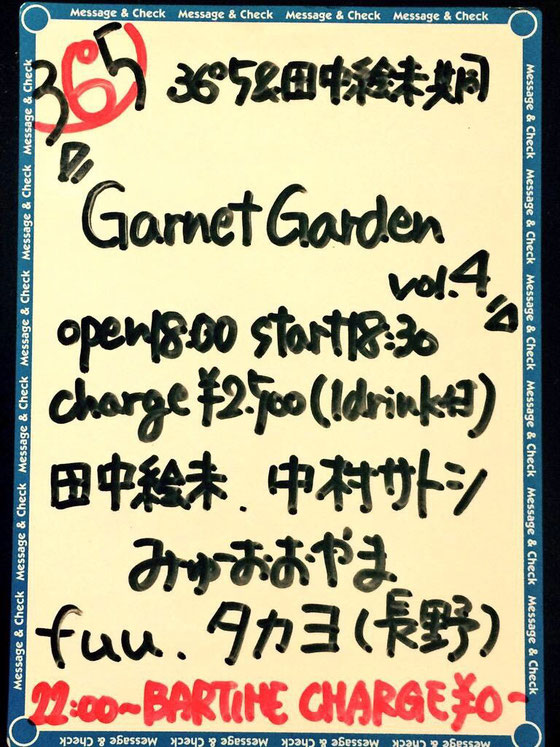 Message & Check Message & Check Message & Check Message & Check
36°5 36°5&田中絵未共同
"Garnet Garden
vol.4"
open18:00 start18:30
charge¥2,500(1drink付)
田中絵未. 中村サトシ
みゅーおおやま
fuu. タカヨ(長野)
22:00~BARTIME CHARGE¥0~
Message & Check Message & Check Message & Check Message & Check